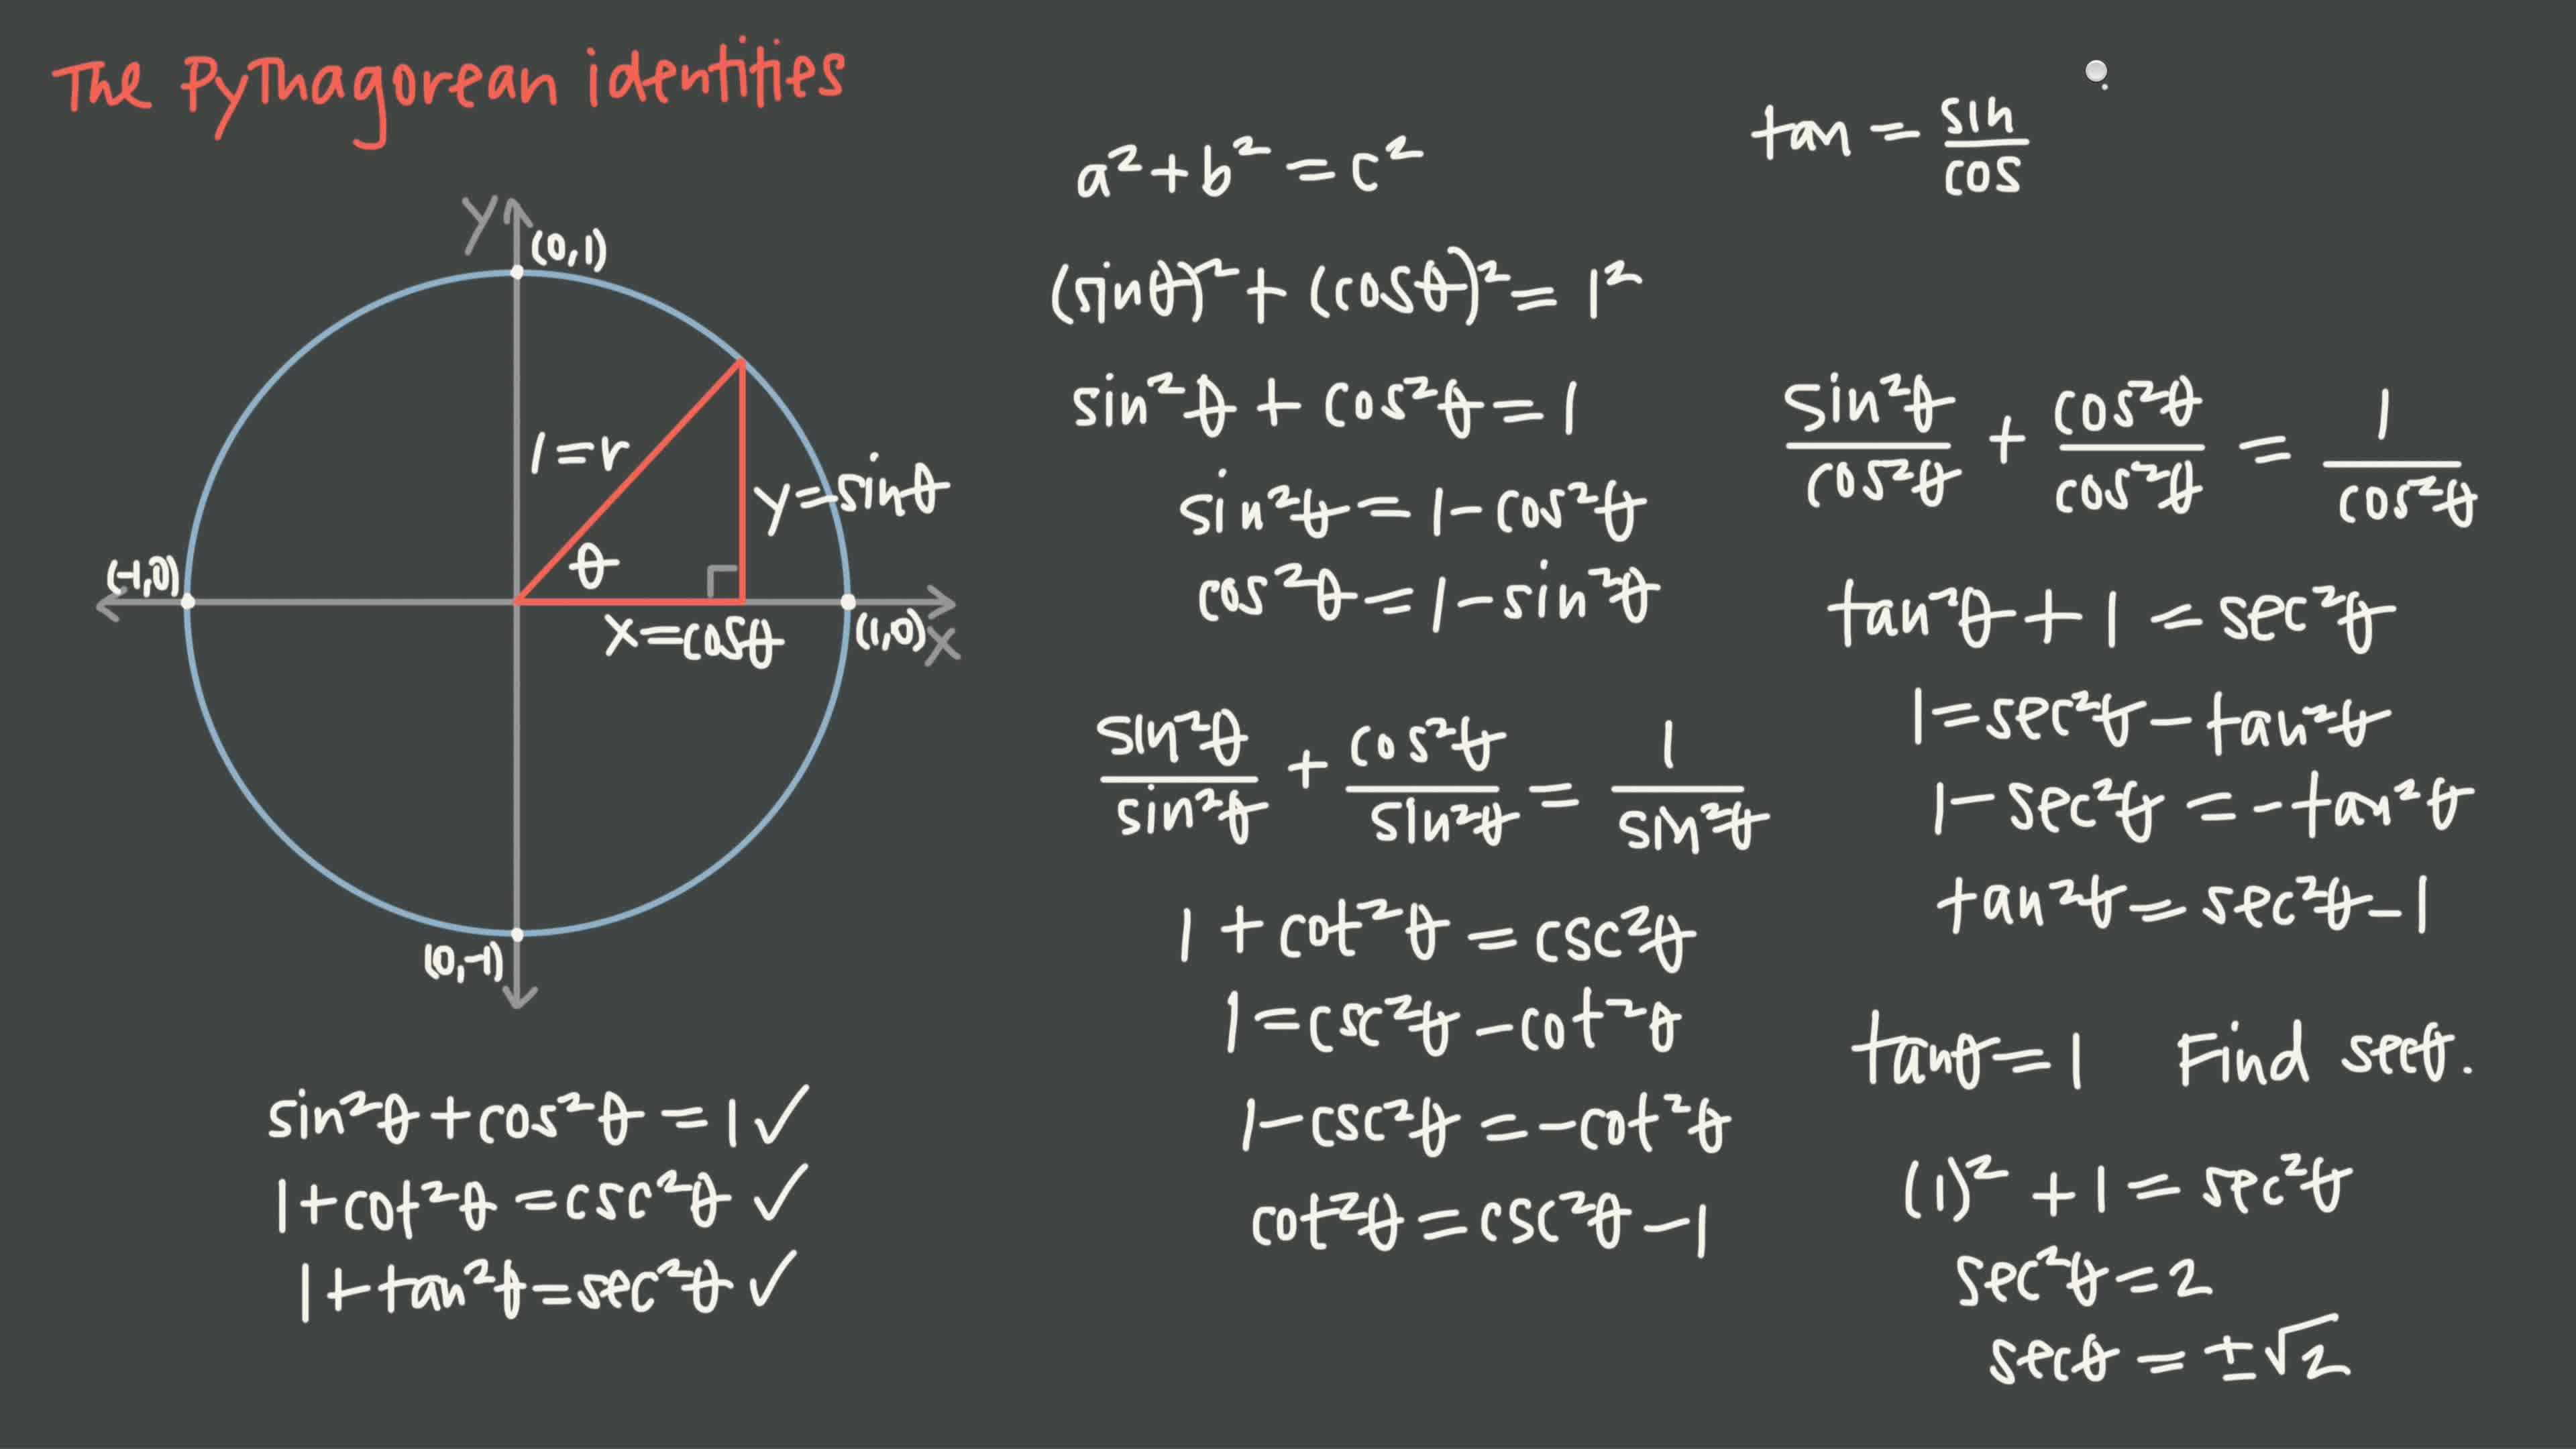 The Pythagorean identities
y
(0,1)
1=r
y=sinθ
θ
(-1,0)
x=cosθ
(1,0)
x
(0,-1)
sin²θ+cos²θ=1✓
1+cot²θ=csc²θ✓
1+tan²θ=sec²θ✓
a²+b²=c²
(sinθ)²+(cosθ)²=1²
sin²θ+cos²θ=1
sin²θ=1-cos²θ
cos²θ=1-sin²θ
sin²θ/sin²θ + cos²θ/sin²θ = 1/sin²θ
1+cot²θ=csc²θ
1=csc²θ-cot²θ
1-csc²θ=-cot²θ
cot²θ=csc²θ-1
tan=sin/cos
sin²θ/cos²θ + cos²θ/cos²θ = 1/cos²θ
tan²θ+1=sec²θ
1=sec²θ-tan²θ
1-sec²θ=-tan²θ
tan²θ=sec²θ-1
tanθ=1 Find secθ.
(1)²+1=sec²θ
sec²θ=2
secθ=±√2